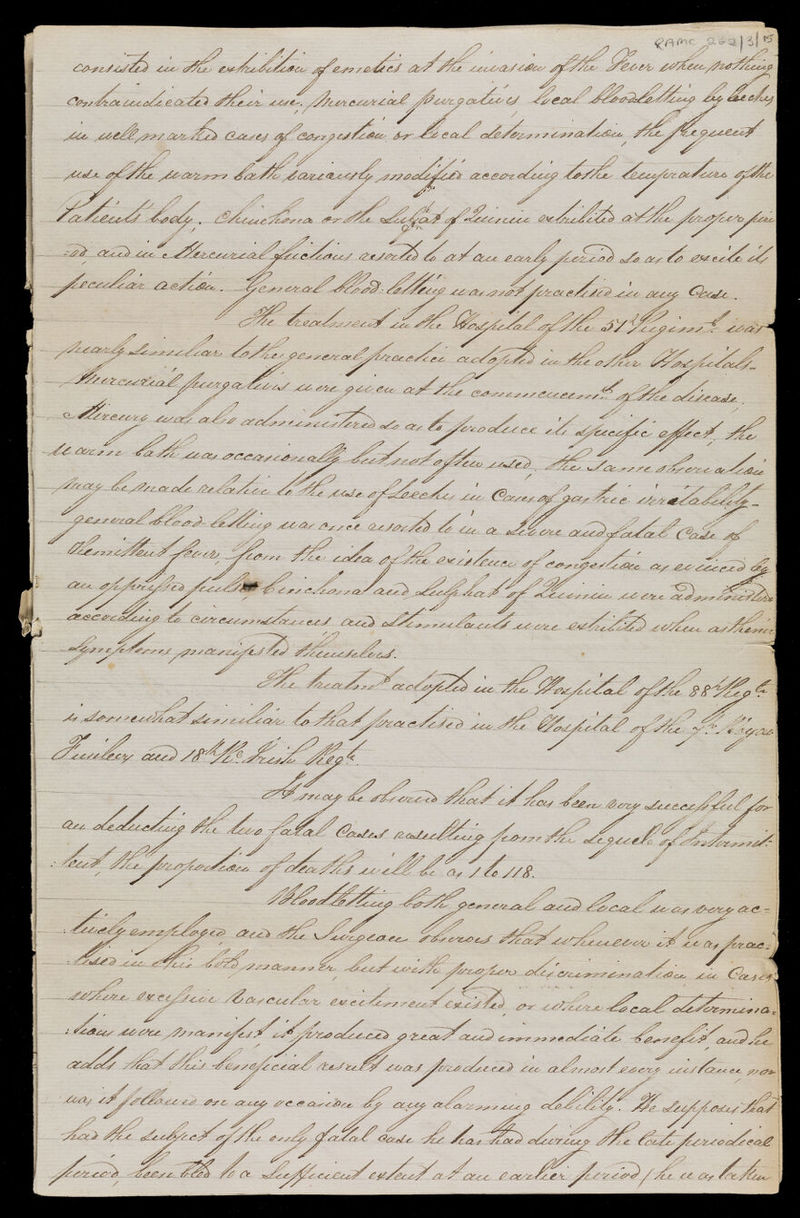 RAMC 262/3/15
consisted in the exhibition of emetics at the invasion of the Fever when nothing
contraindicated their use, Mercurial purgatives local bloodletting by leeches
in well marked cases of congestion or local determination, the frequent
use of the warm bath variously modified according to the temprature of the
Patient's body; Chinchona or the Sulphat of Quinin exhibited at the proper peri
:od and in Mercurial frictions resorted to at an early period so as to excite its
peculiar action. General blood-letting was not practised in any Case.
The treatment in the Hospital of the 51st Regimt. was
nearly similar to the general practice adopted in the other Hospitals-
Mercurial purgatives were given at the commencemt. of the disease;
Mercury was also administered so as to produce its specific effect, the
warm bath was occasionally but not often used, the same observation
may be made relative to the use of Leeches in Cases of gastric irritability-
general blood-letting was once resorted to in a severe and fatal Case of
Remittent fever, from the idea of the existence of congestion as evinced by
an oppressed pulse Cinchona and Sulphat of Quinin were administered
according to circumstances and Stimulants were exhibited when asthenic
Symptoms manifested themselves.
The treatmt. adopted in the Hospital of the 88th Regt.
is somewhat similiar to that practised in the Hospital of the 7th Royal
Fusileers and 18th Rl. Irish Regt.
It may be observed that it has been very successful for
on deducting the two fatal Cases resulting from the sequel of Intermit:
:tent, the proportion of deaths will be as 1 to 118.
Bloodletting both general and local was very ac=
:tively employed and the Surgeon observes that whenever it was prac:
:tised in this bold manner, but with proper discrimination in Cases
where excessive Vascular excitement existed, or where local determina:
:tion were manifest, it produced great and immediate benefit, and he
adds that this beneficial result was produced in almost every instance, nor
was it followed on any occasion by any alarming debility. He supposes that
had the subject of the only fatal case he has had during the late periodical
period, been bled to a Sufficient extent at an earlier period (he was taken